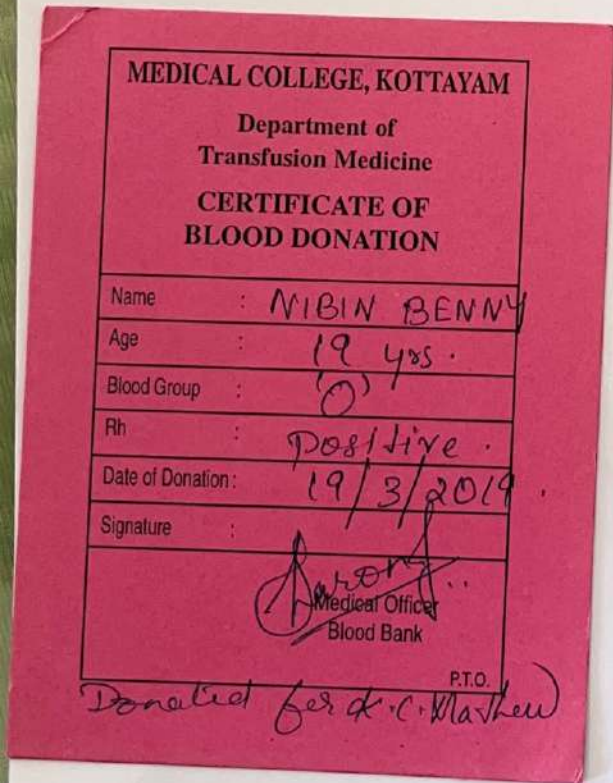 MEDICAL COLLEGE, KOTTAYAM
Department of
Transfusion Medicine
CERTIFICATE OF
BLOOD DONATION
Name : NIBIN BENNY
Age : 19 yrs.
Blood Group : 'O'
Rh : positive.
Date of Donation : 19/3/2019.
Signature :
Medical Officer
Blood Bank
P.T.O.
Donated for K.C. Mathew